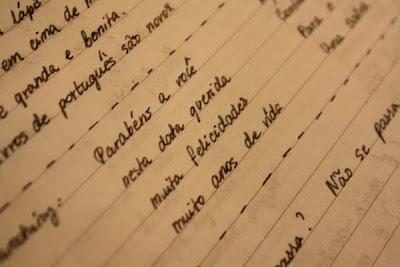 Lápis
em cima de
e grande e bonita.
rros de português são novos
Parabéns a você
nesta data querida
muita felicidades
muito anos de vida
Para o
Uma salva
Não se passa
passa?